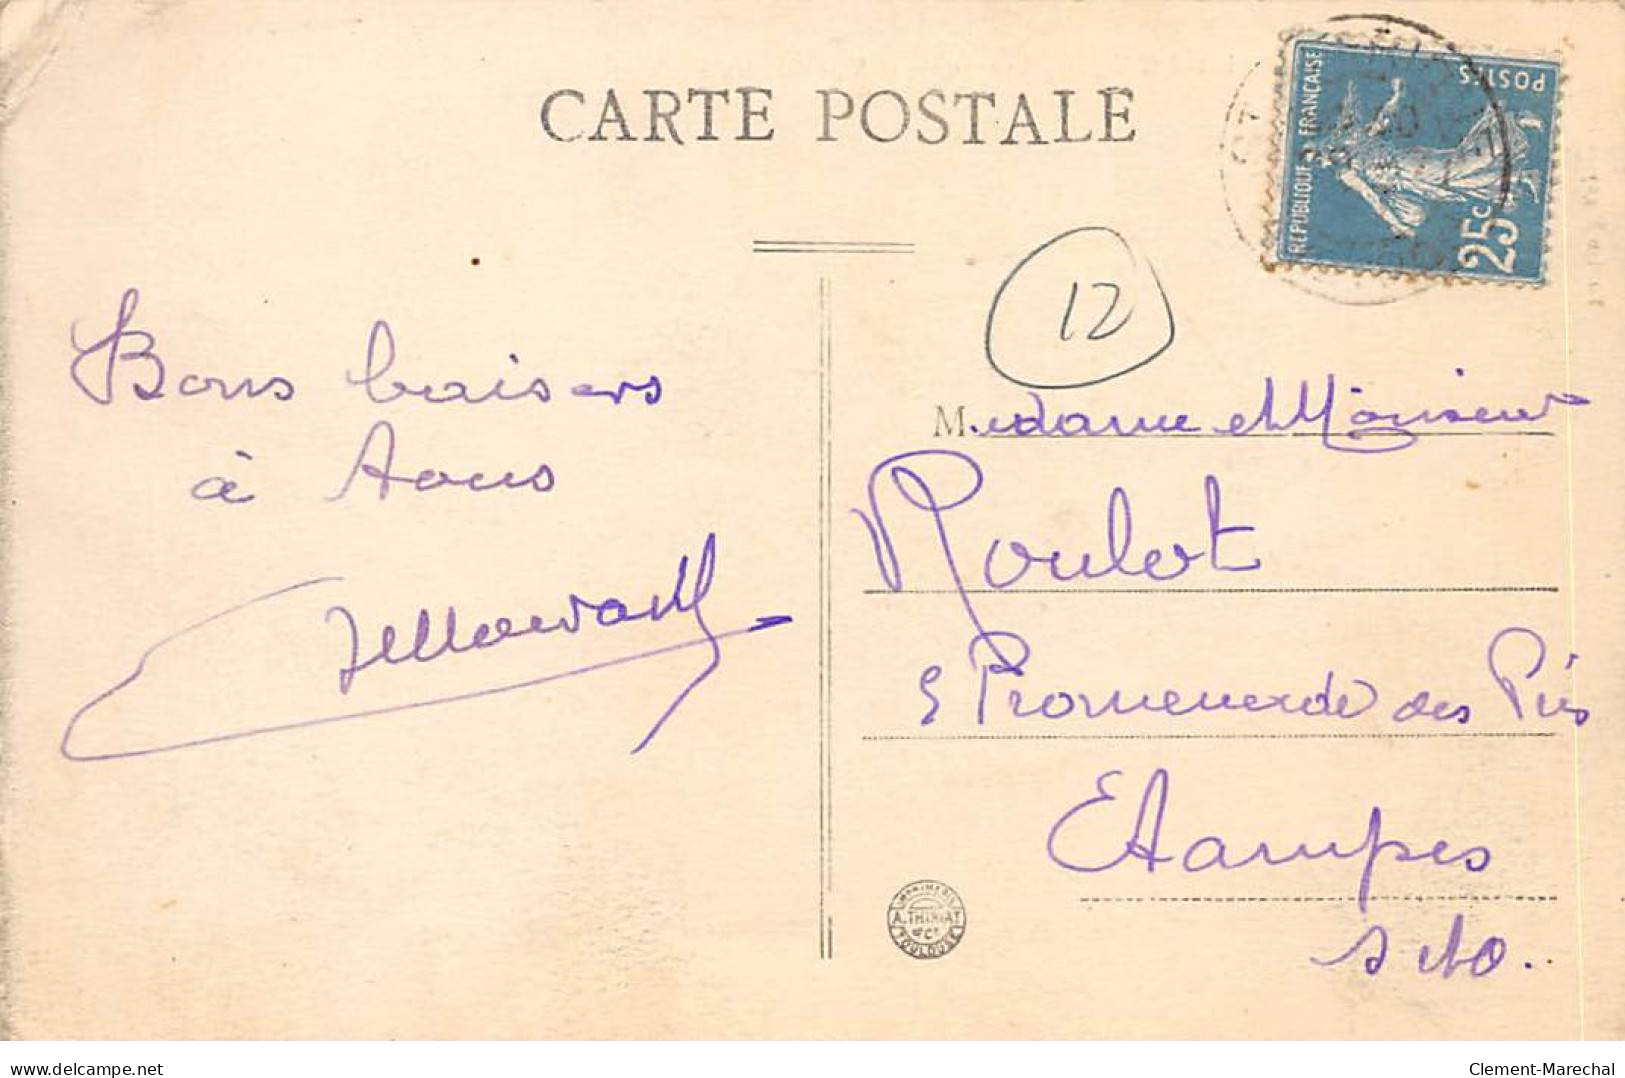 CARTE POSTALE
RÉPUBLIQUE FRANÇAISE
POSTES
25c
12
Bons baisers
à tous
Madame et Monsieur
Roulot
5 Promenade des Prés
Etampes
S et O.
IMPRIMERIE
A. THIRIAT
& Cie
TOULOUSE
www.delcampe.net
Clement-Marechal